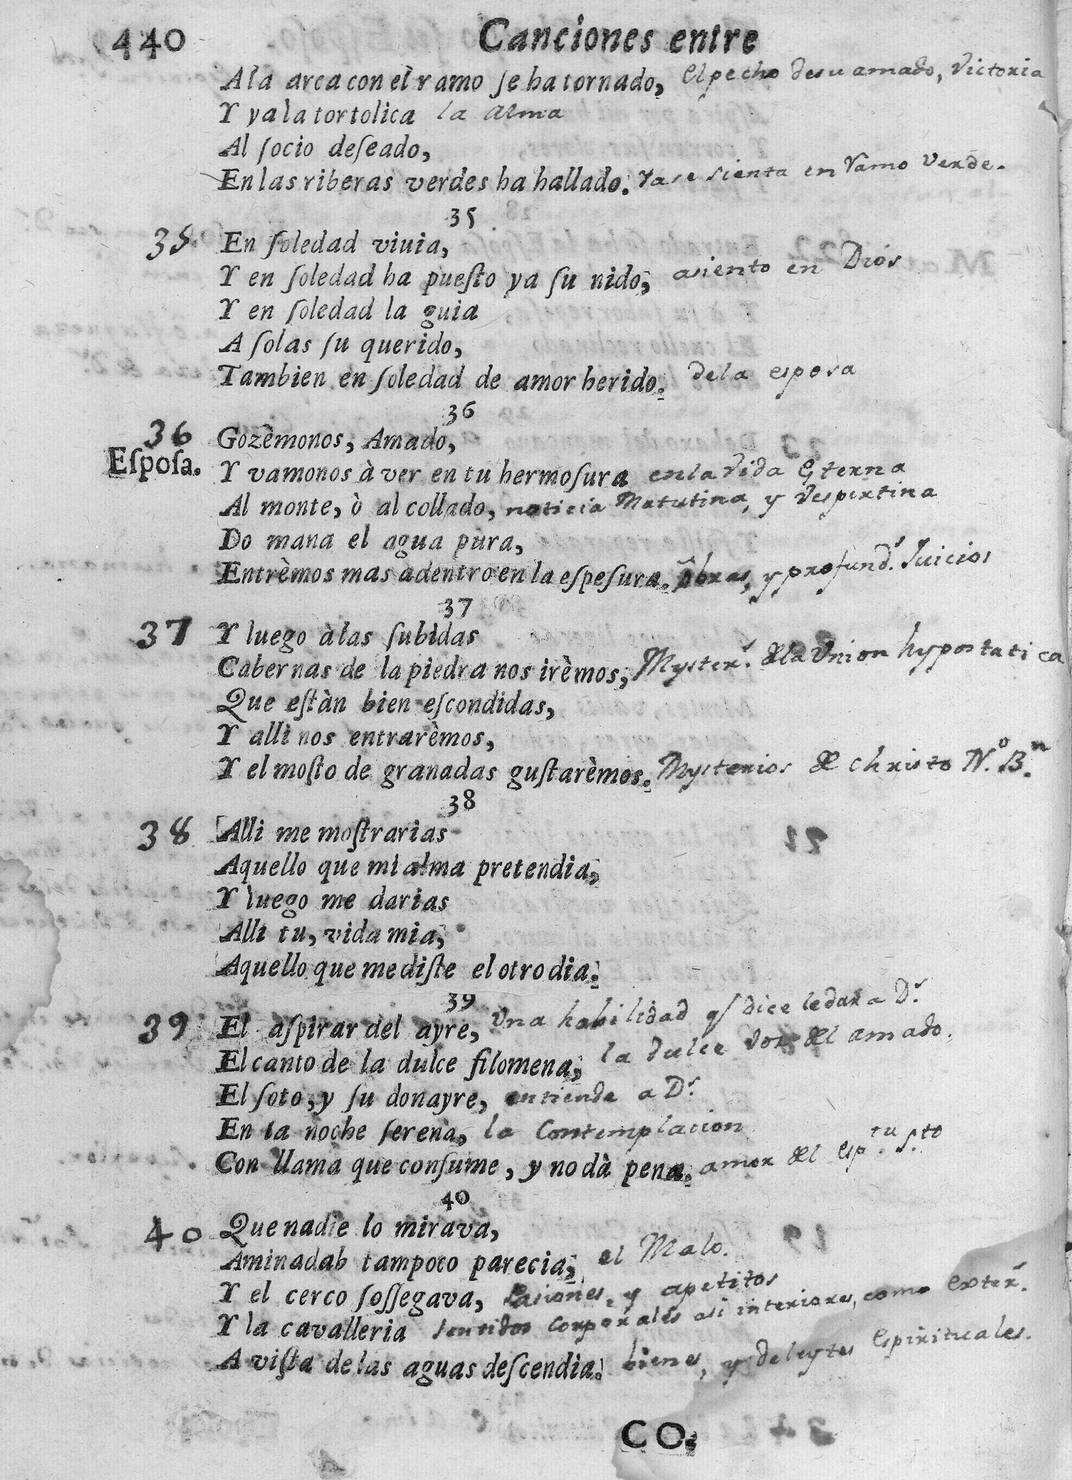 440 Canciones entre
A la arca con el ramo ſe ha tornado, el pecho desu amado, Victoria
Y ya la tortolica la alma
Al ſocio deſeado,
En las riberas verdes ha hallado. Yase sienta en Ramo verde.
35
35 En ſoledad viuia,
Y en ſoledad ha pueſto ya ſu nido, asiento en Dios
Y en ſoledad la guia
A ſolas ſu querido,
Tambien en ſoledad de amor herido. dela esposa
36
36 Gozèmonos, Amado,
Eſpoſa. Y vamonos à ver en tu hermoſura en la vida eterna
Al monte, ò al collado, noticia Matutina, y Vespertina
Do mana el agua pura,
Entrèmos mas adentro en la eſpeſura. obras, y profund.ˢ Juicios
37
37 Y luego à las ſubidas
Cabernas de la piedra nos irèmos, Myster.ˢ de la Union hypostatica
Que eſtàn bien eſcondidas,
Y alli nos entrarèmos,
Y el moſto de granadas guſtarèmos. Mysterios de christo N.º B.ⁿ
38
38 Alli me moſtrarias
Aquello que mi alma pretendia,
Y luego me darias
Alli tu, vida mia,
Aquello que me diſte el otro dia.
39
39 El aſpirar del ayre, Una habilidad q̄ dice ledara D.ˢ
El canto de la dulce filomena, la dulce voz del amado.
El ſoto, y ſu donayre, entiende a D.ˢ
En la noche ſerena, la Contemplacion
Con llama que conſume, y no dà pena. amor del esp.ᵗᵘ S.ᵗᵒ
40
40 Que nadie lo mirava,
Aminadab tampoco parecia, el Malo.
Y el cerco ſoſſegava, Pasiones, y apetitos
Y la cavalleria sentidos corporales asi interiores, como exter.ˢ
A viſta de las aguas deſcendia. bienes, y deleytes Espirituales.
CO,